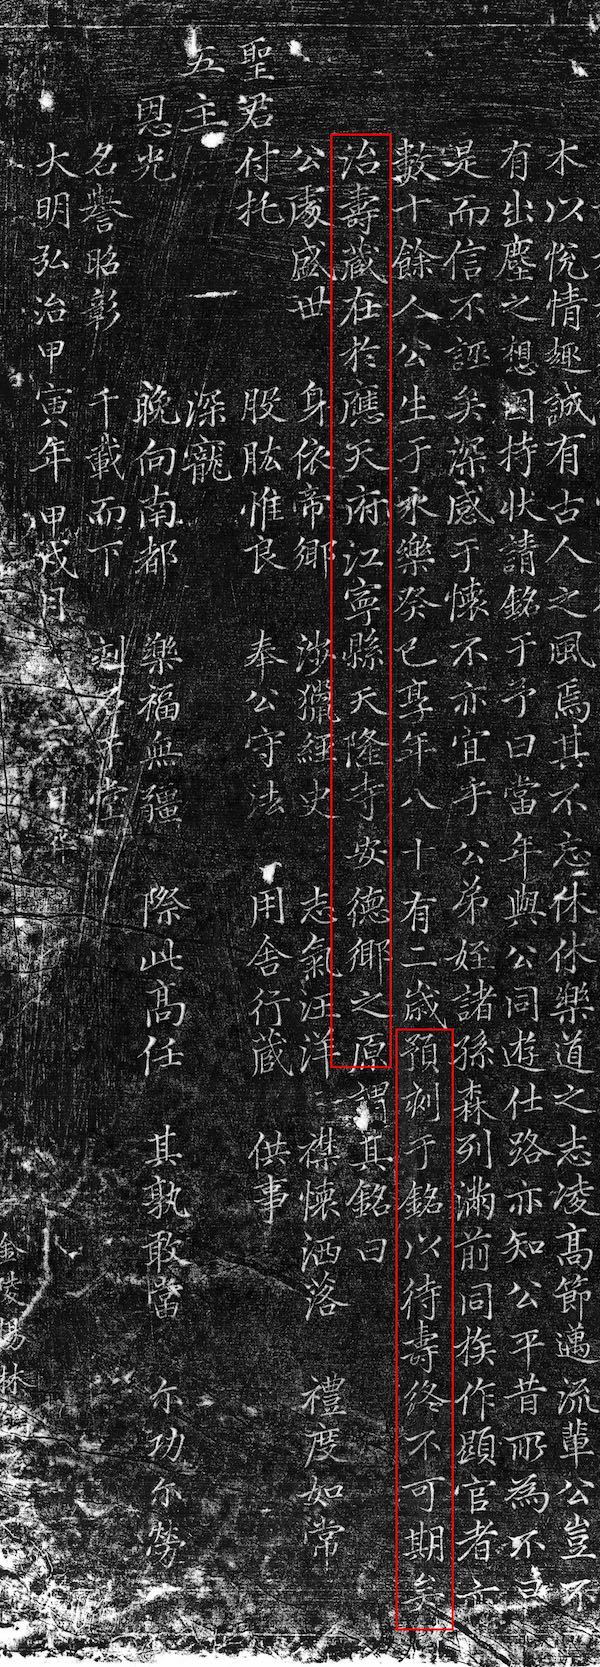 木以悅情趣誠有古人之風焉其不忘休休樂道之志凌高節邁流輩公豈不
有出塵之想因持狀請銘于予曰當年與公同遊仕路亦知公平昔所為不
是而信不誣矣深感于懷不亦宜乎公弟姪諸孫森列滿前同族作顯官者亦
數十餘人公生于永樂癸巳享年八十有二歲預刻于銘以待壽終不可期矣
治壽藏在於應天府江寧縣天隆寺安德鄉之原謂其銘曰
公處盛世 身依帝鄉 涉獵經史 志氣汪洋 襟懷洒落 禮度如常
聖君付托 股肱惟良 奉公守法 用舍行藏 供事
五主 一 深寵
恩光 晚向南都 樂福無疆 際此高任 其孰敢當 尔功尔勞
名譽昭彰 千載而下 堂
大明弘治甲寅年甲戌月
金陵楊林